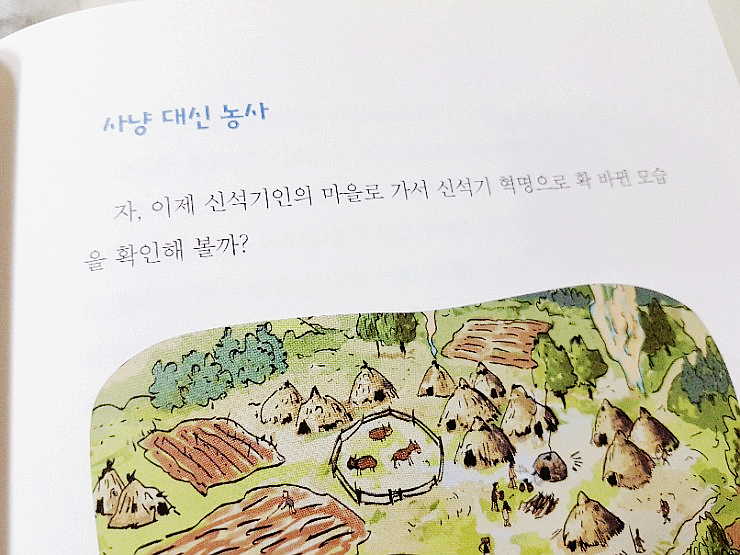 사냥 대신 농사
자, 이제 신석기인의 마을로 가서 신석기 혁명으로 확 바뀐 모습
을 확인해 볼까?